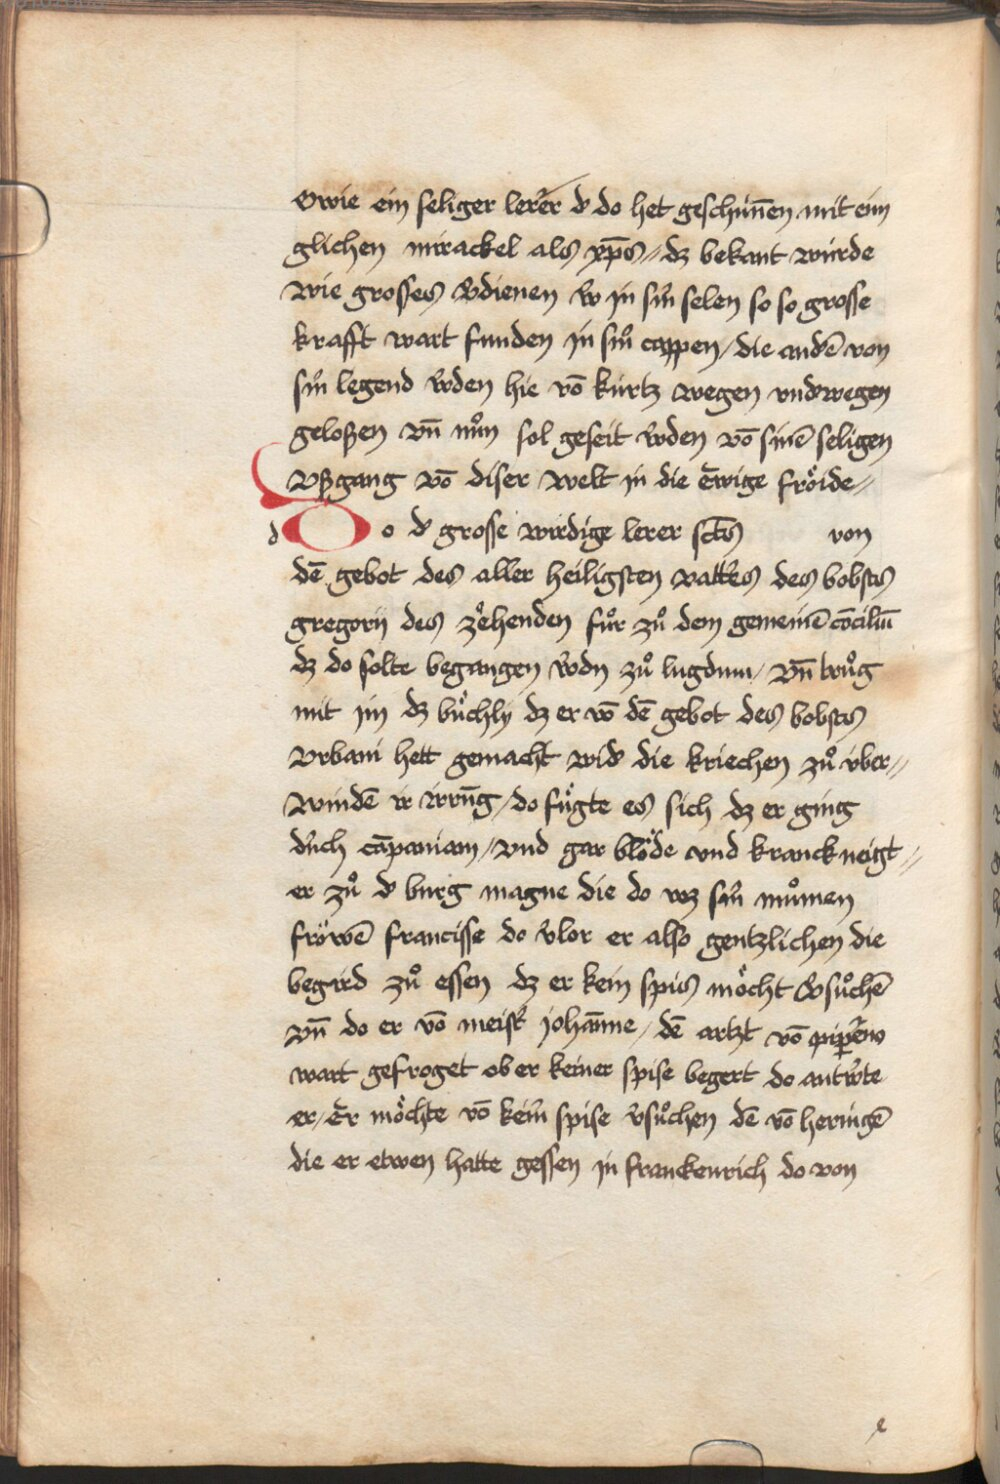 Owie ein seliger lerer d̾ do het geschinen̄ mit eim
glichen mirackel als xp̄s // dz bekant wurde
wie grosses v̾dienen w̾ in sin̾ selen so so grosse
krafft wart funden in sin̾ cappen / die and̾ē von
sin̾ legend w̾den hie vō kurtz wegen vnd̾wegen
geloßen vn̄ nůn sol geseit w̾den vō sinē seligen
vßgang vō diser welt in die ewige fröide //
d Do d̾ grosse wirdige lerer sc̄tꝰ von
dē gebot des aller heiligsten vatt̾es des bobsts
gregorij des zehenden fůr zů dem gemeinē cōciliū
dz do solte begangen w̾dn zů lugdum / vn̄ trůg
mit im dz bůchly dz er vō dē gebot des bobsts
vrbani hett gemacht wid̾ die kriechen zů vber //
windē ir irrūg / do fůgte es sich dz er ging
durch cāpaniam / vnd gar blöde vnd kranck neigt //
er zů d̾ burg magne die do wz sin̾ můmen
fröwē francisse do v̾lor er also gentzlichen die
begird zů essen dz er kein spis möcht v̾sůchē
vn̄ do er vō meist̾ johan̄ne / dē artzt vō
wart gefroget ob er keiner spise begert do antw̾te
er / Er möchte vō kein̾ spise v̾sůchen dē vō heringē
die er etwen hatte gessen in franckenrich do von
e